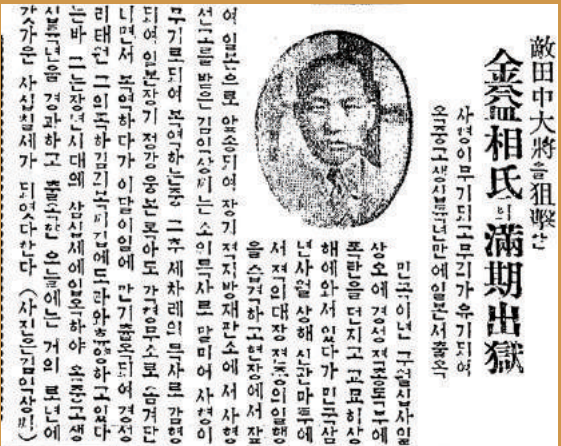 敵田中大將을狙擊한
金益相氏의滿期出獄
사형이무기되고무기가유기되여
옥중고생십륙년만에일본서출옥
민국이년 구월십사일
상오에 경성 젹종독부에
폭탄을 던지고 교묘히상
해에와서 있다가 민국삼
년사월 상해 신관마투에
서 젹의대장 젼중의일행
을 습격하고현장에서 잡
여 일본으로 압송되여 장기 젹지방재판소에서 사형
선고를 받은김익상씨는 소위특사로 말미어 사형이
무기로되여 복역하는중 그후 세차례의 특사로 감형
되여 일본장기 정강웅본록아도 각형무소로 옴겨단
니면서 복역하다가 이달이일에 만기출옥되여 경성
리태원 그의족하김긔복씨집에도라와휴양하고있다
는바 그는장년시대의 삼십세에입옥하야 옥중고생
십륙년을 경과하고 출옥한 오늘에는 거의 로년에
갓가운 사십칠세가 되엿다한다 (사진은김익상씨)